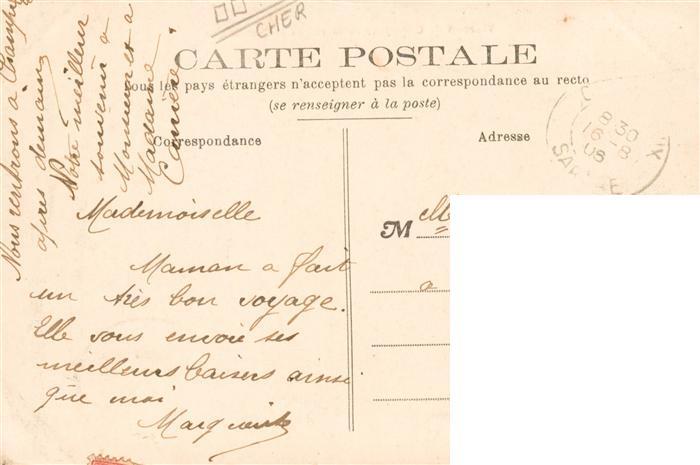 CHER
CARTE POSTALE
Tous les pays étrangers n'acceptent pas la correspondance au recto
(se renseigner à la poste)
Correspondance
Adresse
8 30
16 - 8
06
Mademoiselle
Maman a fait
un très bon voyage.
Elle vous envoie ses
meilleurs baisers ainsi
que moi
M
a
Nous rentrons à
après demain
Notre meilleur
souvenir à
Monsieur et à
Madame